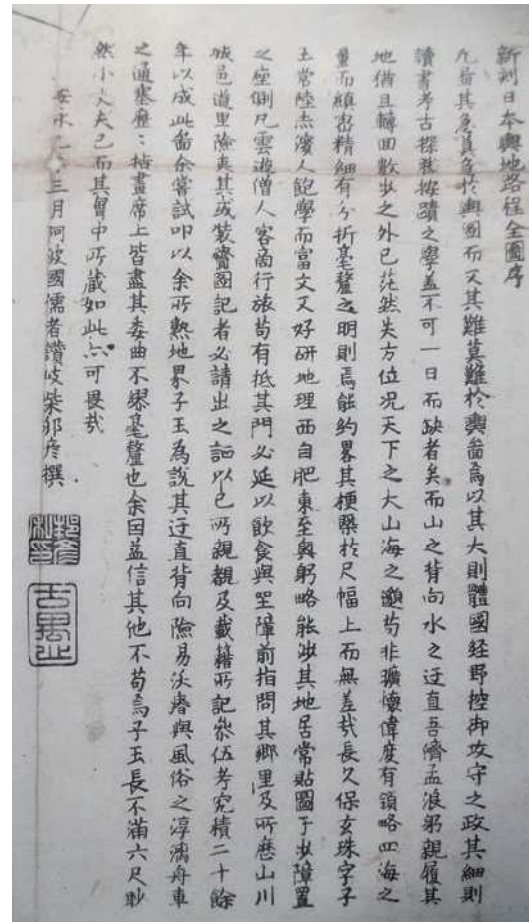 新刻日本輿地路程全圖序
凡着其急莫急於輿圖而又其難莫難於輿啚焉以其大則體國経野控御攻守之政其細則
讀書考古探勝按蹟之學蓋不可一日而缺者矣而山之背向水之迂直吾儕孟浪躬親履其
地猶且轉回數步之外已茫然失方位况天下之大山海之邈苟非曠懐偉度有領略四海之
量而縝密精細有分折毫釐之明則焉能約畧其梗槩於尺幅上而無差哉長久保玄珠字子
玉常陸赤濱人飽學而富文又好研地理西自肥東至奥躬略能渉其地居常貼圖于步障置
之座側凡雲遊僧人客商行旅苟有抵其門必延以飲食與坐障前指問其郷里及所歷山川
城邑道里險夷其或装齎圖記者必請出之証以己所親覩及載籍所記參伍考究積二十餘
年以成此啚余嘗試叩以余所熟地界子玉為説其迂直背向險易沃瘠與風俗之淳漓舟車
之通塞歷〻指畫席上皆盡其委曲不繆毫釐也余因益信其他不苟焉子玉長不滿六尺眇
然小丈夫已而其胷中所藏如此亦可畏哉
安永 三月阿波國儒者讃岐柴邦彦撰
邦彦私印